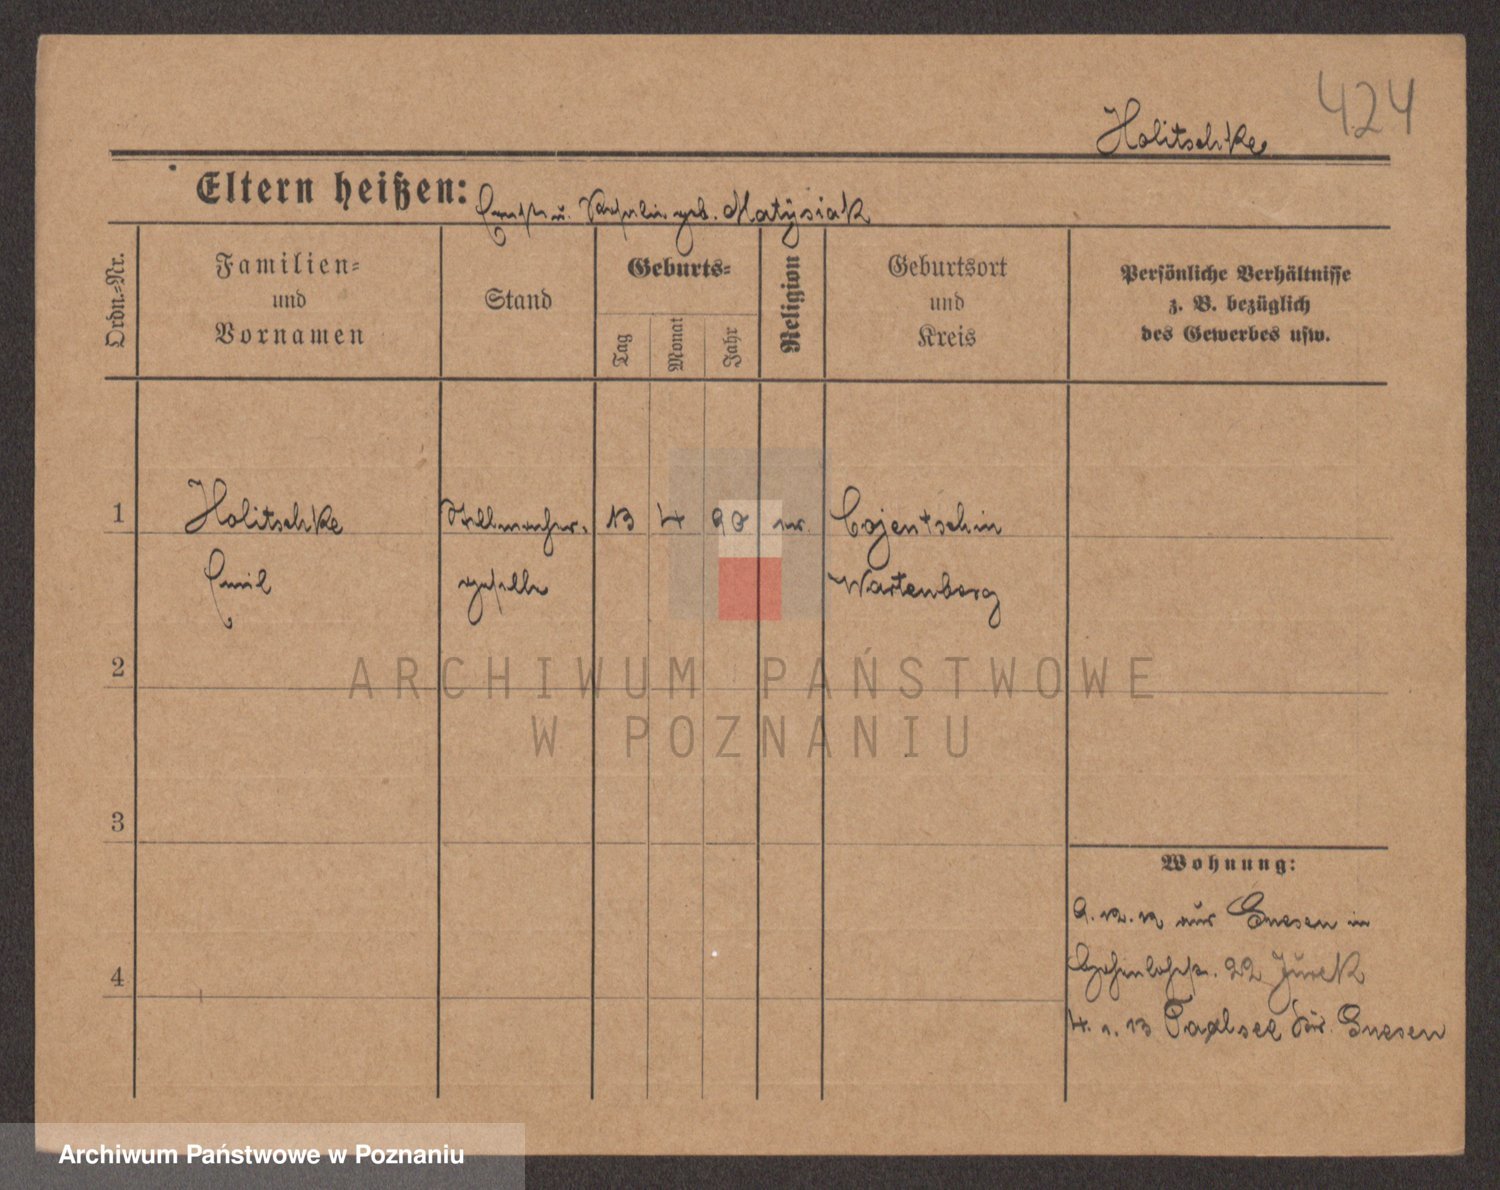 424
Holitschke
Eltern heißen: Ernst u. geb. Matysiak
Ordn.-Nr.
Familien-
und
Vornamen
Stand
Geburts-
Tag
Monat
Jahr
Religion
Geburtsort
und
Kreis
Persönliche Verhältnisse
z. B. bezüglich
des Gewerbes usw.
1 Holitschke Stellmacher- 13 4 90 Cojentschin
Emil geselle Wartenberg
2
ARCHIWUM PAŃSTWOWE
W POZNANIU
3
Wohnung:
9. 12. 12 aus Gnesen in
Hohenlohestr. 22 Jurek
4
4. 1. 13 Gnesen
Archiwum Państwowe w Poznaniu